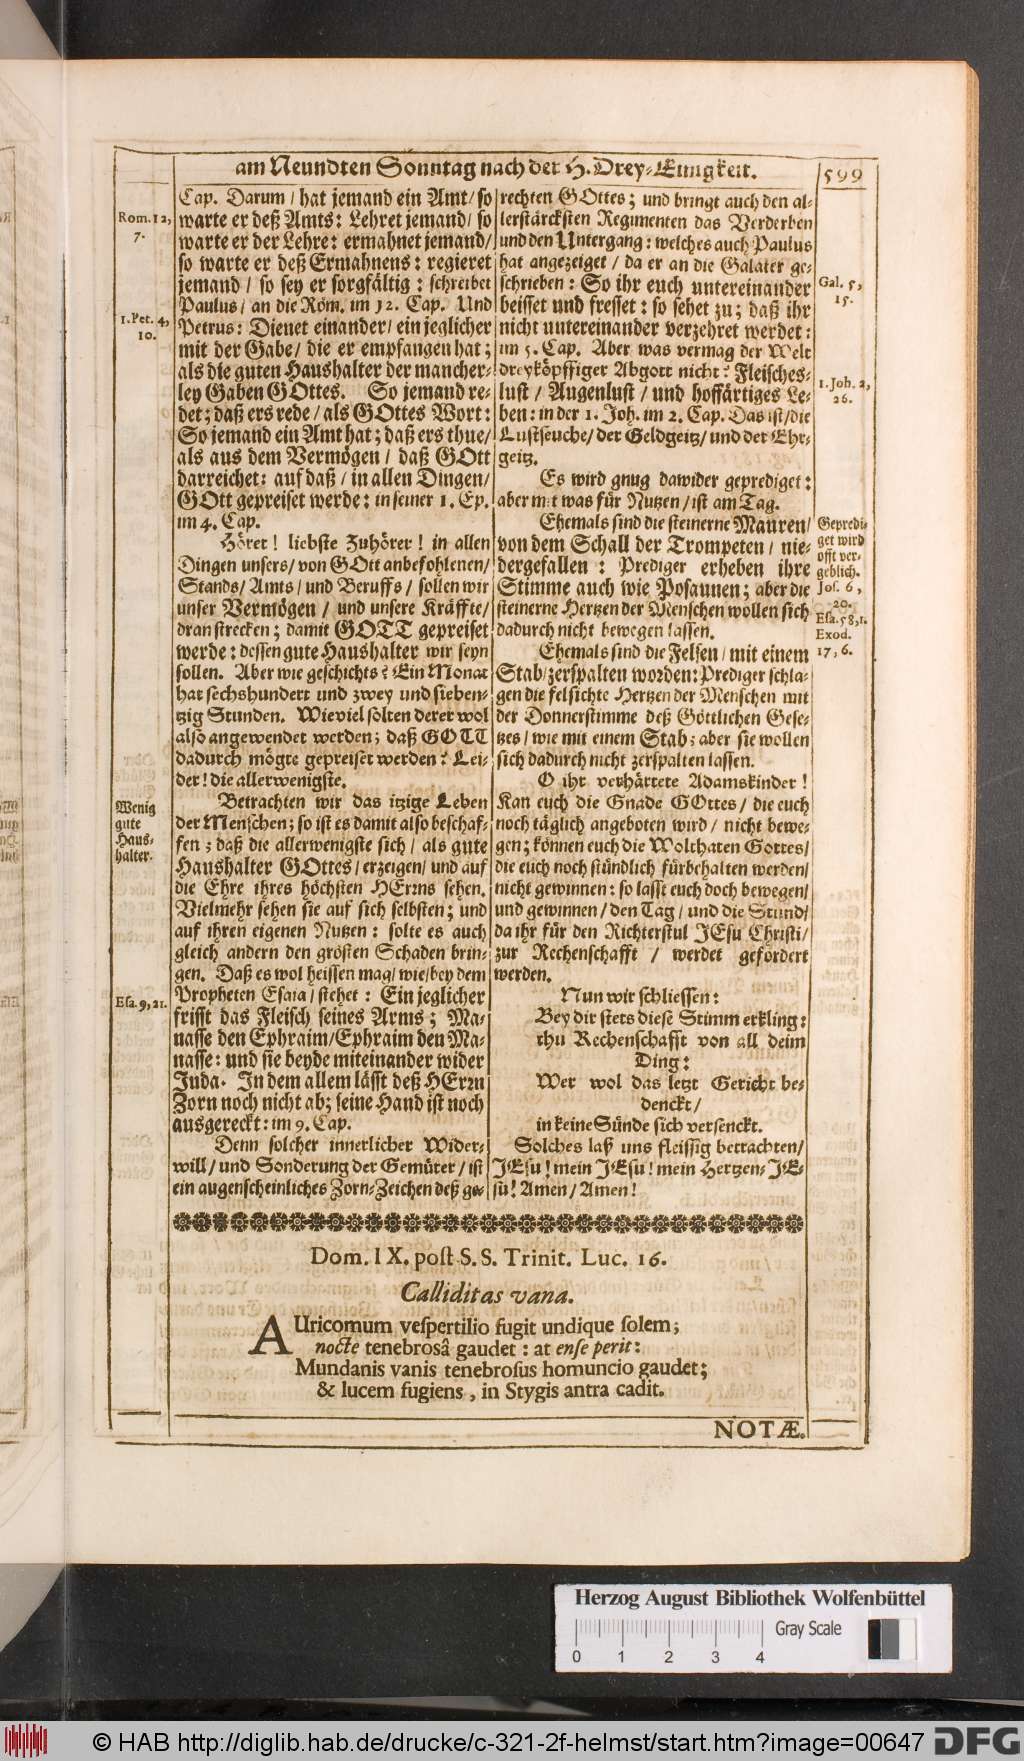 am Neundten Sonntag nach der H. Drey-Einigkeit.
599
Cap. Darum / hat jemand ein Amt / so
warte er deß Amts: Lehret jemand / so
warte er der Lehre: ermahnet jemand /
so warte er deß Ermahnens: regieret
jemand / so sey er sorgfältig: schreibet
Paulus / an die Röm. im 12. Cap. Und
Petrus: Dienet einander / ein jeglicher
mit der Gabe / die er empfangen hat;
als die guten Haushalter der mancher-
ley Gaben GOttes. So jemand re-
det; daß ers rede / als GOttes Wort:
So jemand ein Amt hat; daß ers thue /
als aus dem Vermögen / daß GOtt
darreichet: auf daß / in allen Dingen /
GOtt gepreiset werde: in seiner 1. Ep.
im 4. Cap.
Höret! liebste Zuhörer! in allen
Dingen unsers / von GOtt anbefohlenen /
Stands / Amts / und Beruffs / sollen wir
unser Vermögen / und unsere Kräffte /
dran strecken; damit GOTT gepreiset
werde: dessen gute Haushalter wir seyn
sollen. Aber wie geschichts? Ein Monat
hat sechshundert und zwey und sieben-
tzig Stunden. Wieviel solten derer wol
also angewendet werden; daß GOTT
dadurch mögte gepreiset werden? Lei-
der! die allerwenigste.
Betrachten wir das itzige Leben
der Menschen; so ist es damit also beschaf-
fen; daß die allerwenigste sich / als gute
Haushalter GOttes / erzeigen / und auf
die Ehre ihres höchsten HErrns sehen.
Vielmehr sehen sie auf sich selbsten; und
auf ihren eigenen Nutzen: solte es auch
gleich andern den grösten Schaden brin-
gen. Daß es wol heissen mag / wie / bey dem
Propheten Esaia / stehet: Ein jeglicher
frisst das Fleisch seines Arms; Ma-
nasse den Ephraim / Ephraim den Ma-
nasse: und sie beyde miteinander wider
Juda. In dem allem lässt deß HErrn
Zorn noch nicht ab; seine Hand ist noch
ausgereckt: im 9. Cap.
Denn solcher innerlicher Wider-
will / und Sonderung der Gemüter / ist
ein augenscheinliches Zorn-Zeichen deß ge-
Rom. 12,
7.
1. Pet. 4,
10.
Wenig
gute
Haus-
halter.
Esa. 9, 21.
rechten GOttes; und bringt auch den al-
lerstärcksten Regimenten das Verderben
und den Untergang: welches auch Paulus
hat angezeiget / da er an die Galater ge-
schrieben: So ihr euch untereinander
beisset und fresset: so sehet zu; daß ihr
nicht untereinander verzehret werdet:
im 5. Cap. Aber was vermag der Welt
dreyköpffiger Abgott nicht? Fleisches-
lust / Augenlust / und hoffärtiges Le-
ben: in der 1. Joh. im 2. Cap. Das ist / die
Lustseuche / der Geldgeitz / und der Ehr-
geitz.
Es wird gnug dawider geprediget:
aber mit was für Nutzen / ist am Tag.
Ehemals sind die steinerne Mauren /
von dem Schall der Trompeten / nie-
dergefallen: Prediger erheben ihre
Stimme auch wie Posaunen; aber die
steinerne Hertzen der Menschen wollen sich
dadurch nicht bewegen lassen.
Ehemals sind die Felsen / mit einem
Stab / zerspalten worden: Prediger schla-
gen die felsichte Hertzen der Menschen mit
der Donnerstimme deß Göttlichen Gese-
tzes / wie mit einem Stab; aber sie wollen
sich dadurch nicht zerspalten lassen.
O ihr verhärtete Adamskinder!
Kan euch die Gnade GOttes / die euch
noch täglich angeboten wird / nicht bewe-
gen; können euch die Wolthaten Gottes /
die euch noch stündlich fürbehalten werden /
nicht gewinnen: so lasst euch doch bewegen /
und gewinnen / den Tag / und die Stund /
da ihr für den Richterstul JEsu Christi /
zur Rechenschafft / werdet gefordert
werden.
Nun wir schliessen:
Bey dir stets diese Stimm erkling:
thu Rechenschafft von all deim
Ding:
Wer wol das letzt Gericht be-
denckt /
in keine Sünde sich versenckt.
Solches laß uns fleissig betrachten /
JEsu! mein JEsu! mein Hertzen-JE-
su! Amen / Amen!
Gal. 5,
15.
1. Joh. 2,
26.
Gepredi-
get wird
offt ver-
geblich.
Jos. 6,
20.
Esa. 58, 1.
Exod.
17, 6.
Dom. IX. post S. S. Trinit. Luc. 16.
Calliditas vana.
AUricomum vespertilio fugit undique solem;
nocte tenebrosâ gaudet: at ense perit:
Mundanis vanis tenebrosus homuncio gaudet;
& lucem fugiens, in Stygis antra cadit.
NOTÆ.
Herzog August Bibliothek Wolfenbüttel
Gray Scale
0 1 2 3 4
© HAB http://diglib.hab.de/drucke/c-321-2f-helmst/start.htm?image=00647
DFG